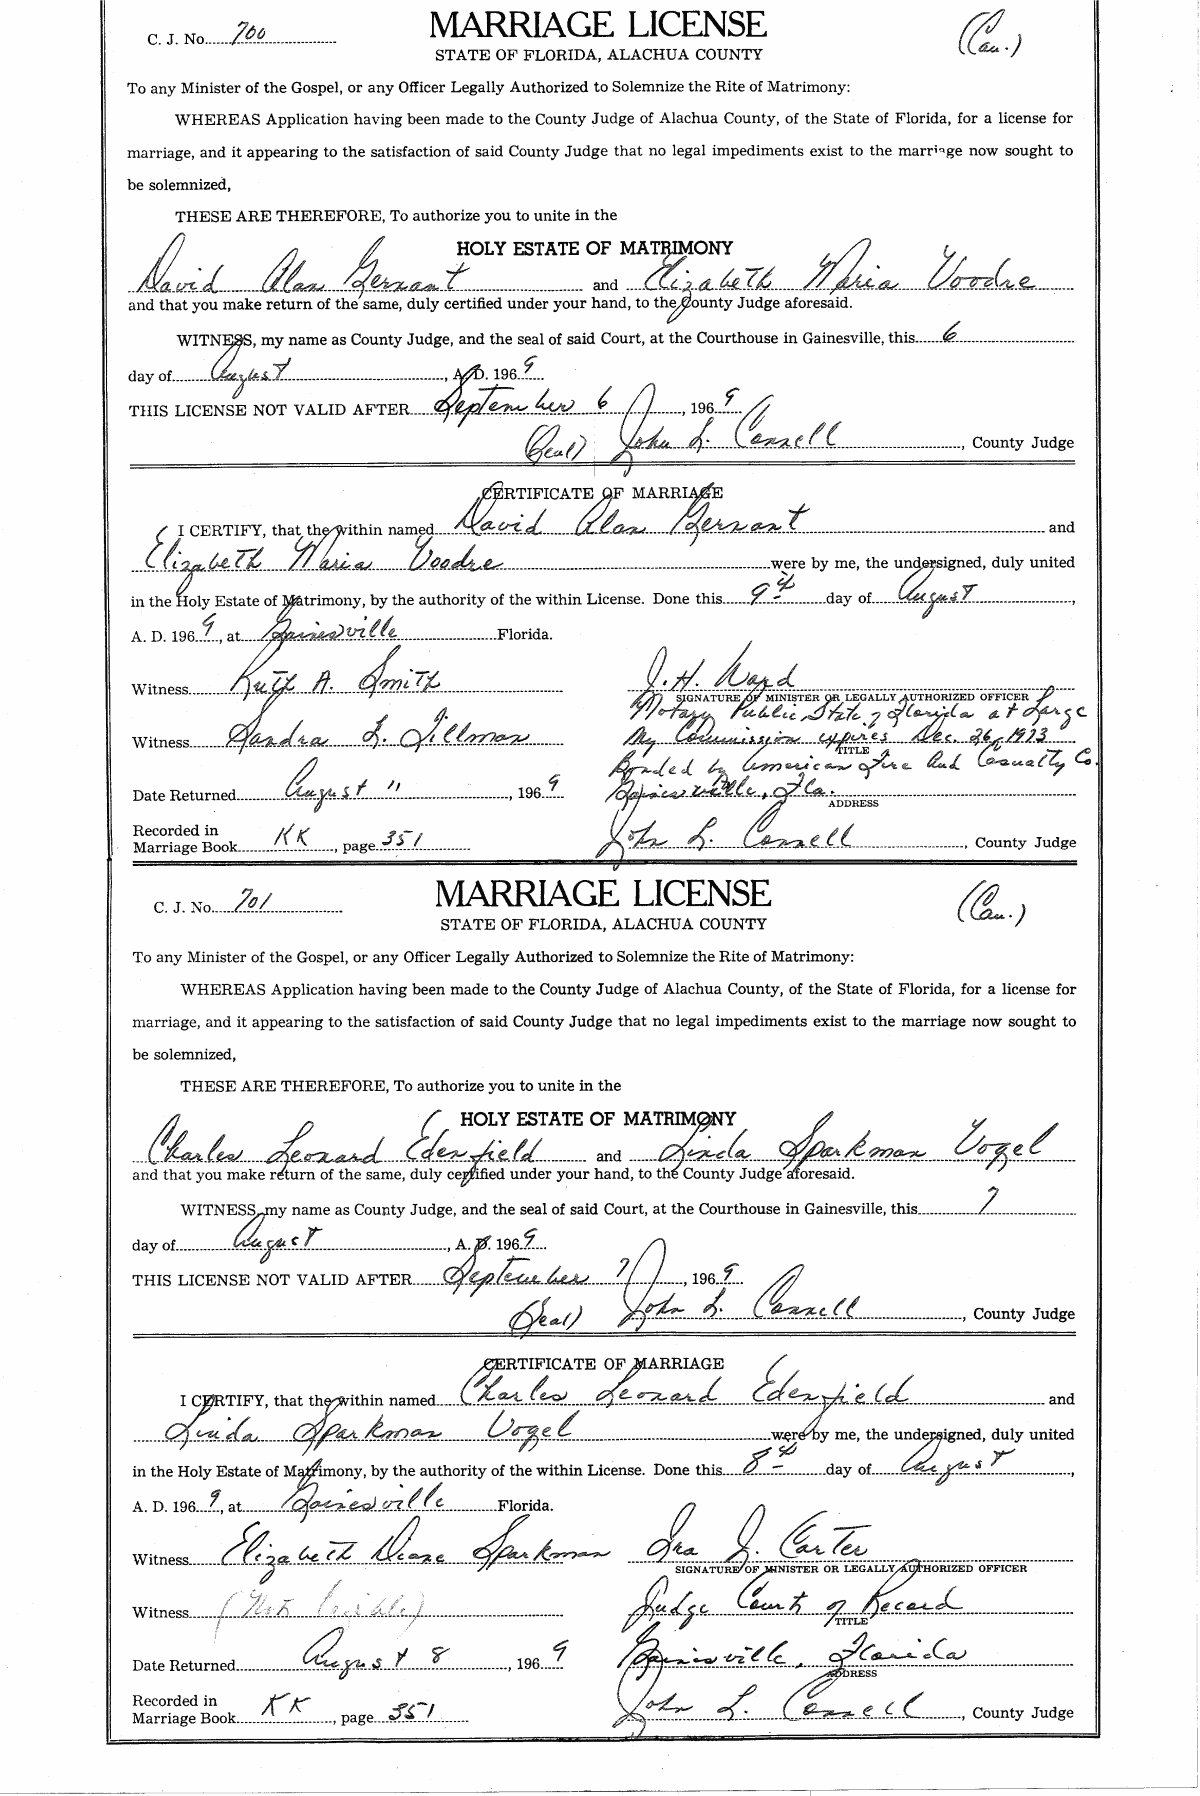 C. J. No. 700
MARRIAGE LICENSE
(Cau.)
STATE OF FLORIDA, ALACHUA COUNTY
To any Minister of the Gospel, or any Officer Legally Authorized to Solemnize the Rite of Matrimony:
WHEREAS Application having been made to the County Judge of Alachua County, of the State of Florida, for a license for
marriage, and it appearing to the satisfaction of said County Judge that no legal impediments exist to the marriage now sought to
be solemnized,
THESE ARE THEREFORE, To authorize you to unite in the
HOLY ESTATE OF MATRIMONY
David Alan Gernant and Elizabeth Maria Voodre
and that you make return of the same, duly certified under your hand, to the County Judge aforesaid.
WITNESS, my name as County Judge, and the seal of said Court, at the Courthouse in Gainesville, this 6
day of August, A. D. 1969
THIS LICENSE NOT VALID AFTER September 6, 1969
(Seal) John L. Connell, County Judge
CERTIFICATE OF MARRIAGE
I CERTIFY, that the within named David Alan Gernant and
Elizabeth Maria Voodre were by me, the undersigned, duly united
in the Holy Estate of Matrimony, by the authority of the within License. Done this 9th day of August,
A. D. 1969, at Gainesville Florida.
Witness Ruth A. Smith J. H. Ward
SIGNATURE OF MINISTER OR LEGALLY AUTHORIZED OFFICER
Notary Public State of Florida at Large
Witness Sandra L. Tillman My Commission expires Dec. 26, 1973
TITLE
Bonded by American Fire And Casualty Co.
Date Returned August 11, 1969 Gainesville, Fla.
ADDRESS
Recorded in
Marriage Book KK, page 351 John L. Connell, County Judge
C. J. No. 701
MARRIAGE LICENSE
(Cau.)
STATE OF FLORIDA, ALACHUA COUNTY
To any Minister of the Gospel, or any Officer Legally Authorized to Solemnize the Rite of Matrimony:
WHEREAS Application having been made to the County Judge of Alachua County, of the State of Florida, for a license for
marriage, and it appearing to the satisfaction of said County Judge that no legal impediments exist to the marriage now sought to
be solemnized,
THESE ARE THEREFORE, To authorize you to unite in the
HOLY ESTATE OF MATRIMONY
Charles Leonard Edenfield and Linda Sparkman Vogel
and that you make return of the same, duly certified under your hand, to the County Judge aforesaid.
WITNESS, my name as County Judge, and the seal of said Court, at the Courthouse in Gainesville, this 7
day of August, A. D. 1969
THIS LICENSE NOT VALID AFTER September 7, 1969
(Seal) John L. Connell, County Judge
CERTIFICATE OF MARRIAGE
I CERTIFY, that the within named Charles Leonard Edenfield and
Linda Sparkman Vogel were by me, the undersigned, duly united
in the Holy Estate of Matrimony, by the authority of the within License. Done this 8th day of August,
A. D. 1969, at Gainesville Florida.
Witness Elizabeth Diane Sparkman Ira J. Carter
SIGNATURE OF MINISTER OR LEGALLY AUTHORIZED OFFICER
Witness (Not legible) Judge Court of Record
TITLE
Date Returned August 8, 1969 Gainesville, Florida
ADDRESS
Recorded in
Marriage Book KK, page 351 John L. Connell, County Judge